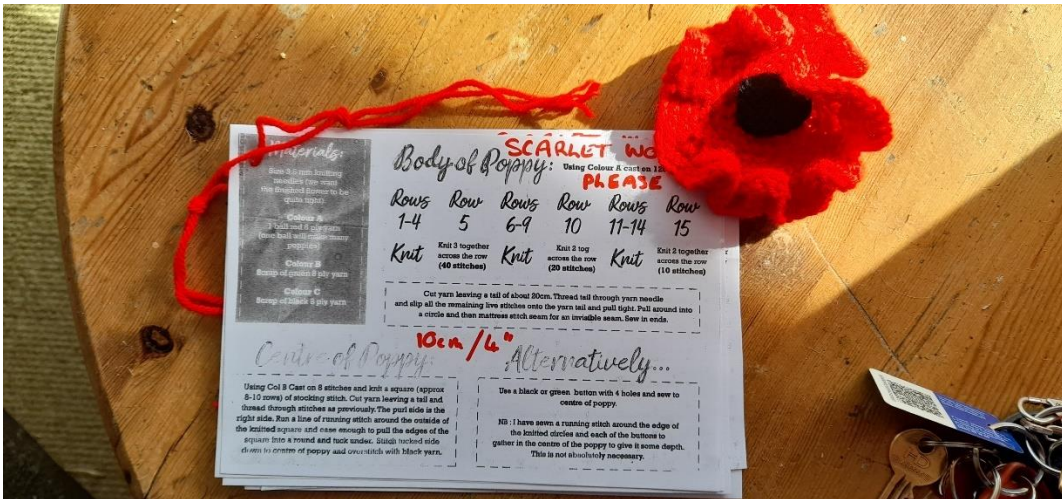 Materials:
Size 3.5 mm knitting
needles (we want
the finished flower to be
quite tight).
Colour A
1 ball red 8 ply yarn
(one ball will make many
poppies)
Colour B
Scrap of green 8 ply yarn
Colour C
Scrap of black 8 ply yarn
SCARLET WO
Body of Poppy: Using Colour A cast on 12
PLEASE
Rows Row Rows Row Rows Row
1-4 5 6-9 10 11-14 15
Knit Knit 3 together across the row (40 stitches) Knit Knit 2 tog across the row (20 stitches) Knit Knit 2 together across the row (10 stitches)
Cut yarn leaving a tail of about 20cm. Thread tail through yarn needle
and slip all the remaining live stitches onto the yarn tail and pull tight. Pull around into
a circle and then mattress stitch seam for an invisible seam. Sew in ends.
10cm/4"
Centre of Poppy:
Using Col B Cast on 8 stitches and knit a square (approx
8-10 rows) of stocking stitch. Cut yarn leaving a tail and
thread through stitches as previously. The purl side is the
right side. Run a line of running stitch around the outside of
the knitted square and ease enough to pull the edges of the
square into a round and tuck under. Stitch tucked side
down to centre of poppy and overstitch with black yarn.
Alternatively...
Use a black or green button with 4 holes and sew to
centre of poppy.
NB : I have sewn a running stitch around the edge of
the knitted circles and each of the buttons to
gather in the centre of the poppy to give it some depth.
This is not absolutely necessary.